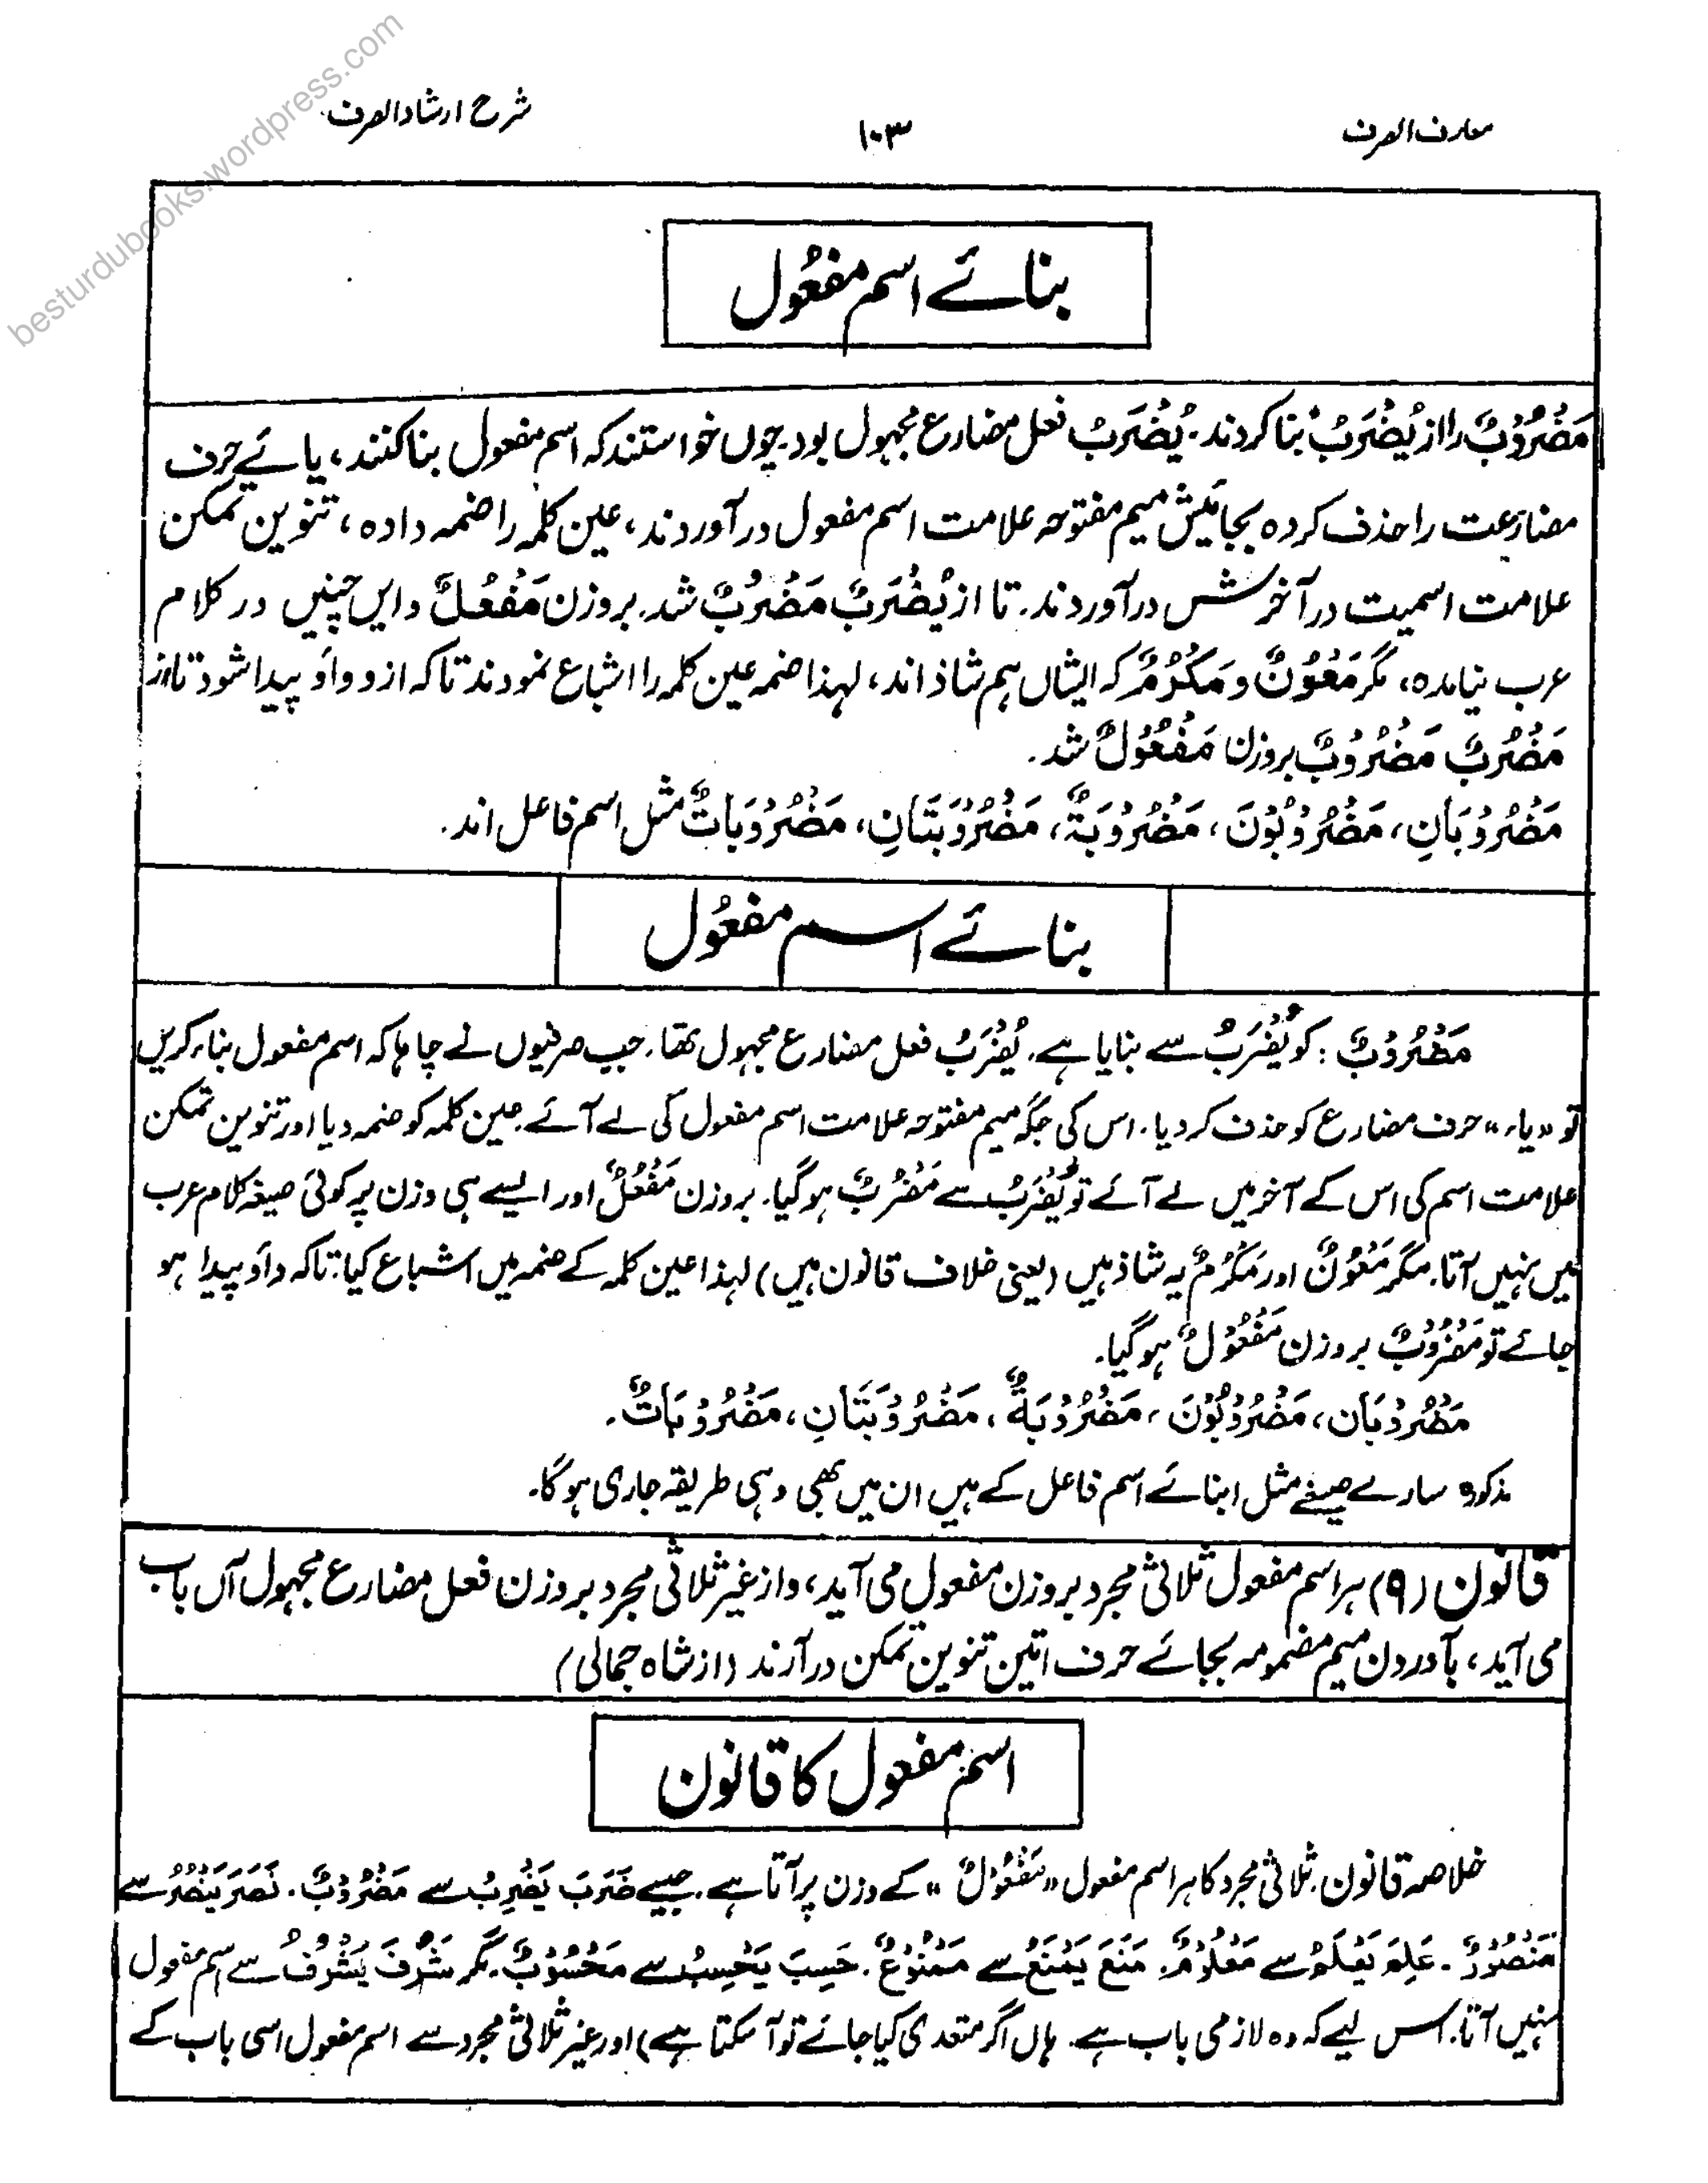 معارف الصرف
۱۰۳
شرح ارشاد الصرف
besturdubooks.wordpress.com
بنائے اسم مفعُول
مَضْرُوْبٌ را از یُضْرَبُ بنا کردند. یُضْرَبُ فعل مضارع مجہول بود. چوں خواستند کہ اسم مفعول بنا کنند، یائے حرف
مضارعت را حذف کردہ بجائیش میم مفتوحہ علامت اسم مفعول در آوردند، عین کلمہ را ضمہ دادہ، تنوین تمکن
علامت اسمیت در آخرش در آوردند. تا از یُضْرَبُ مَضْرُبٌ شد. بروزن مَفْعُلٌ و ایں چنیں در کلام
عرب نیامدہ، مگر مَعْوُنٌ و مَکْرُمٌ کہ ایشاں ہم شاذ اند، لہذا ضمہ عین کلمہ را اشباع نمودند تا کہ ازو واؤ پیدا شود تا از
مَضْرُبٌ مَضْرُوْبٌ بروزن مَفْعُوْلٌ شد.
مَضْرُوْبَانِ، مَضْرُوْبُوْنَ، مَضْرُوْبَۃٌ، مَضْرُوْبَتَانِ، مَضْرُوْبَاتٌ مثل اسم فاعل اند.
بنائے اسم مفعُول
مَضْرُوْبٌ : کو یُضْرَبُ سے بنایا ہے. یُضْرَبُ فعل مضارع مجہول تھا. جب صرفیوں نے چاہا کہ اسم مفعول بناء کریں
تو «یاء» حرف مضارع کو حذف کر دیا. اس کی جگہ میم مفتوحہ علامت اسم مفعول کی لے آئے. عین کلمہ کو ضمہ دیا اور تنوین تمکن
علامت اسم کی اس کے آخر میں لے آئے تو یُضْرَبُ سے مَضْرُبٌ ہو گیا. بروزن مَفْعُلٌ اور ایسے ہی وزن پر کوئی صیغہ کلام عرب
میں نہیں آتا. مگر مَعْوُنٌ اور مَکْرُمٌ یہ شاذ ہیں (یعنی خلاف قانون ہیں) لہذا عین کلمہ کے ضمہ میں اشباع کیا: تا کہ واؤ پیدا ہو
جائے تو مَضْرُوْبٌ بروزن مَفْعُوْلٌ ہو گیا.
مَضْرُوْبَانِ، مَضْرُوْبُوْنَ، مَضْرُوْبَۃٌ، مَضْرُوْبَتَانِ، مَضْرُوْبَاتٌ.
مذکورہ سارے صیغے مثل ابنائے اسم فاعل کے ہیں ان میں بھی وہی طریقہ جاری ہو گا.
قانون (۹) ہر اسم مفعول ثلاثی مجرد بروزن مفعول می آید، و از غیر ثلاثی مجرد بروزن فعل مضارع مجہول آں باب
می آید، بآوردن میم مضمومہ بجائے حرف اتین تنوین تمکن در آرند (از شاہ جمالی)
اسم مفعول کا قانون
خلاصہ قانون. ثلاثی مجرد کا ہر اسم مفعول «مَفْعُوْلٌ» کے وزن پر آتا ہے. جیسے ضَرَبَ یَضْرِبُ سے مَضْرُوْبٌ. نَصَرَ یَنْصُرُ سے
مَنْصُوْرٌ. عَلِمَ یَعْلَمُ سے مَعْلُوْمٌ. مَنَعَ یَمْنَعُ سے مَمْنُوْعٌ. حَسِبَ یَحْسِبُ سے مَحْسُوْبٌ. مگر شَرُفَ یَشْرُفُ سے اسم مفعول
نہیں آتا. اس لیے کہ وہ لازمی باب ہے. ہاں اگر متعدی کیا جائے تو آ سکتا ہے) اور غیر ثلاثی مجرد سے اسم مفعول اسی باب کے